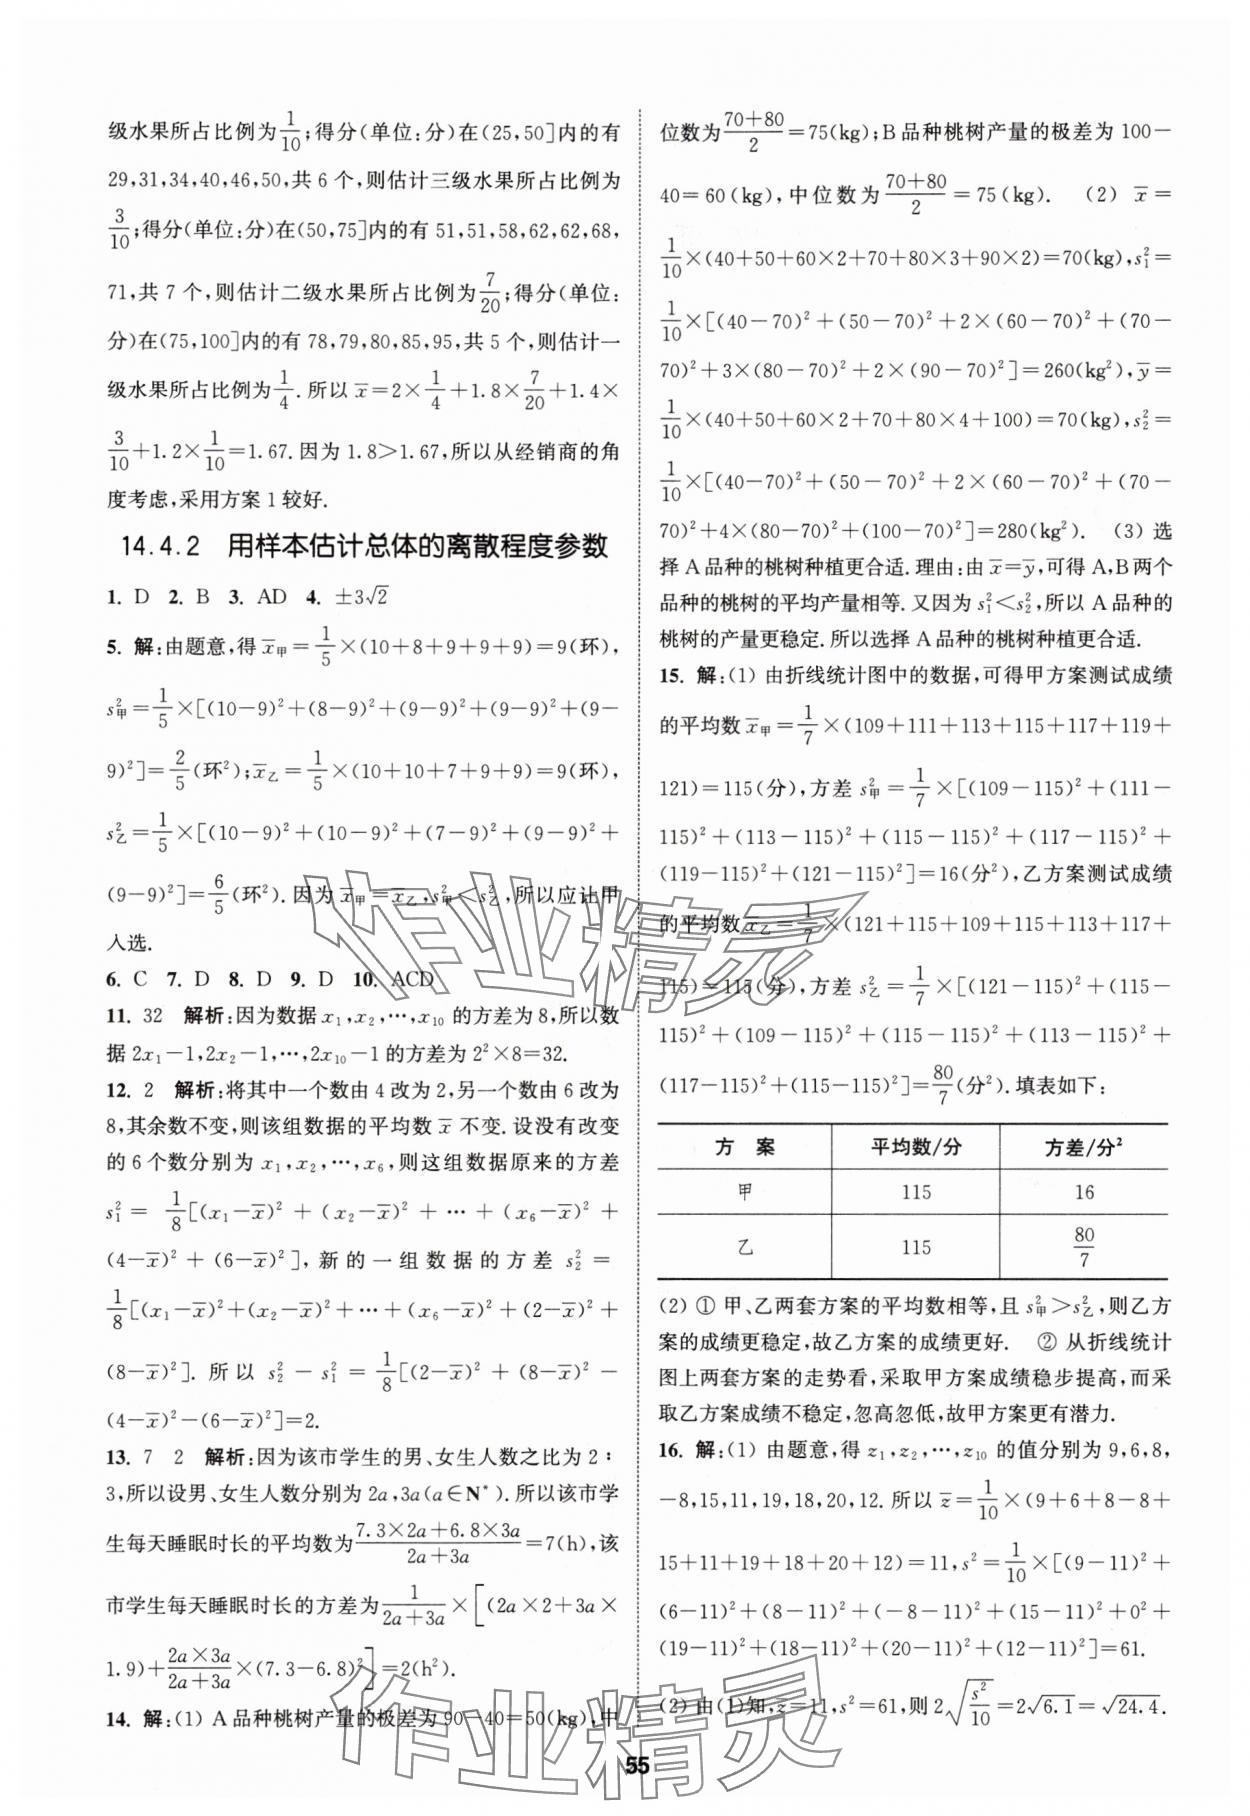 级水果所占比例为1/10;得分(单位:分)在(25,50]内的有
29,31,34,40,46,50,共6个,则估计三级水果所占比例为
3/10;得分(单位:分)在(50,75]内的有51,51,58,62,62,68,
71,共7个,则估计二级水果所占比例为7/20;得分(单位:
分)在(75,100]内的有78,79,80,85,95,共5个,则估计一
级水果所占比例为1/4.所以x̄=2×1/4+1.8×7/20+1.4×
3/10+1.2×1/10=1.67.因为1.8>1.67,所以从经销商的角
度考虑,采用方案1较好.
14.4.2 用样本估计总体的离散程度参数
1. D 2. B 3. AD 4. ±3√2
5. 解:由题意,得x̄甲=1/5×(10+8+9+9+9)=9(环),
s²甲=1/5×[(10-9)²+(8-9)²+(9-9)²+(9-9)²+(9-
9)²]=2/5(环²);x̄乙=1/5×(10+10+7+9+9)=9(环),
s²乙=1/5×[(10-9)²+(10-9)²+(7-9)²+(9-9)²+
(9-9)²]=6/5(环²).因为x̄甲=x̄乙,s²甲<s²乙,所以应让甲
入选.
6. C 7. D 8. D 9. D 10. ACD
11. 32 解析:因为数据x₁,x₂,…,x₁₀的方差为8,所以数
据2x₁-1,2x₂-1,…,2x₁₀-1的方差为2²×8=32.
12. 2 解析:将其中一个数由4改为2,另一个数由6改为
8,其余数不变,则该组数据的平均数x̄不变.设没有改变
的6个数分别为x₁,x₂,…,x₆,则这组数据原来的方差
s₁²=1/8[(x₁-x̄)²+(x₂-x̄)²+…+(x₆-x̄)²+
(4-x̄)²+(6-x̄)²],新的一组数据的方差s₂²=
1/8[(x₁-x̄)²+(x₂-x̄)²+…+(x₆-x̄)²+(2-x̄)²+
(8-x̄)²].所以s₂²-s₁²=1/8[(2-x̄)²+(8-x̄)²-
(4-x̄)²-(6-x̄)²]=2.
13. 7 2 解析:因为该市学生的男、女生人数之比为2:
3,所以设男、女生人数分别为2a,3a(a∈N*).所以该市学
生每天睡眠时长的平均数为(7.3×2a+6.8×3a)/(2a+3a)=7(h),该
市学生每天睡眠时长的方差为1/(2a+3a)×[(2a×2+3a×
1.9)+(2a×3a)/(2a+3a)×(7.3-6.8)²]=2(h²).
14. 解:(1) A品种桃树产量的极差为90-40=50(kg),中
位数为(70+80)/2=75(kg);B品种桃树产量的极差为100-
40=60(kg),中位数为(70+80)/2=75(kg). (2) x̄=
1/10×(40+50+60×2+70+80×3+90×2)=70(kg),s₁²=
1/10×[(40-70)²+(50-70)²+2×(60-70)²+(70-
70)²+3×(80-70)²+2×(90-70)²]=260(kg²),ȳ=
1/10×(40+50+60×2+70+80×4+100)=70(kg),s₂²=
1/10×[(40-70)²+(50-70)²+2×(60-70)²+(70-
70)²+4×(80-70)²+(100-70)²]=280(kg²). (3) 选
择A品种的桃树种植更合适.理由:由x̄=ȳ,可得A,B两个
品种的桃树的平均产量相等.又因为s₁²<s₂²,所以A品种的
桃树的产量更稳定.所以选择A品种的桃树种植更合适.
15. 解:(1) 由折线统计图中的数据,可得甲方案测试成绩
的平均数x̄甲=1/7×(109+111+113+115+117+119+
121)=115(分),方差s²甲=1/7×[(109-115)²+(111-
115)²+(113-115)²+(115-115)²+(117-115)²+
(119-115)²+(121-115)²]=16(分²),乙方案测试成绩
的平均数x̄乙=1/7×(121+115+109+115+113+117+
115)=115(分),方差s²乙=1/7×[(121-115)²+(115-
115)²+(109-115)²+(115-115)²+(113-115)²+
(117-115)²+(115-115)²]=80/7(分²).填表如下:
方 案 平均数/分 方差/分²
甲 115 16
乙 115 80/7
(2) ① 甲、乙两套方案的平均数相等,且s²甲>s²乙,则乙方
案的成绩更稳定,故乙方案的成绩更好. ② 从折线统计
图上两套方案的走势看,采取甲方案成绩稳步提高,而采
取乙方案成绩不稳定,忽高忽低,故甲方案更有潜力.
16. 解:(1) 由题意,得z₁,z₂,…,z₁₀的值分别为9,6,8,
-8,15,11,19,18,20,12.所以z̄=1/10×(9+6+8-8+
15+11+19+18+20+12)=11,s²=1/10×[(9-11)²+
(6-11)²+(8-11)²+(-8-11)²+(15-11)²+0²+
(19-11)²+(18-11)²+(20-11)²+(12-11)²]=61.
(2) 由(1)知,z̄=11,s²=61,则2√(s²/10)=2√6.1=√24.4.
55
作业精灵
作业精灵